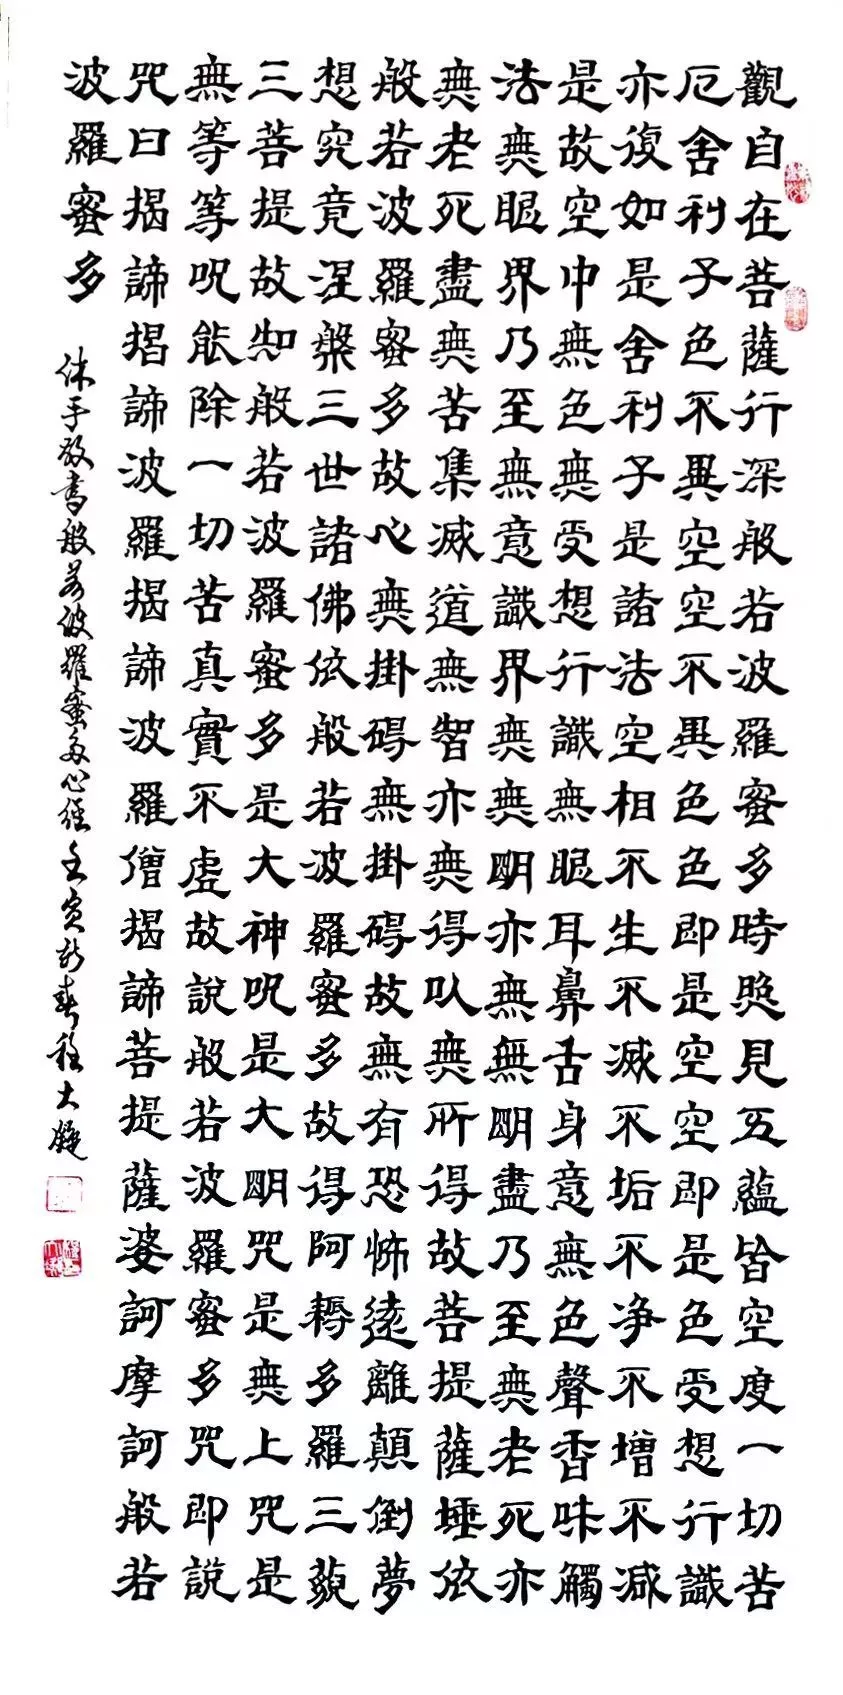 觀自在菩薩行深般若波羅蜜多時照見五蘊皆空度一切苦
厄舍利子色不異空空不異色色即是空空即是色受想行識
亦復如是舍利子是諸法空相不生不滅不垢不净不增不減
是故空中無色無受想行識無眼耳鼻舌身意無色聲香味觸
法無眼界乃至無意識界無無明亦無無明盡乃至無老死亦
無老死盡無苦集滅道無智亦無得以無所得故菩提薩埵依
般若波羅蜜多故心無掛碍無掛碍故無有恐怖遠離顛倒夢
想究竟涅槃三世諸佛依般若波羅蜜多故得阿耨多羅三藐
三菩提故知般若波羅蜜多是大神咒是大明咒是無上咒是
無等等呪能除一切苦真實不虛故說般若波羅蜜多咒即說
咒曰揭諦揭諦波羅揭諦波羅僧揭諦菩提薩婆訶摩訶般若
波羅蜜多
沐手敬書般若波羅蜜多心經壬寅新春程大